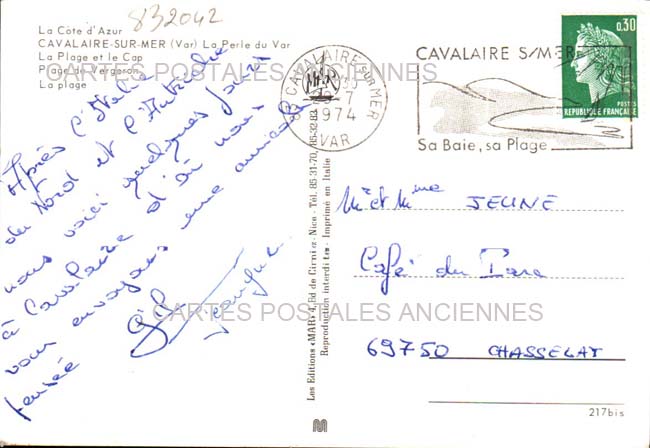 832042
La Côte d'Azur
CAVALAIRE-SUR-MER (Var) La Perle du Var
La Plage et le Cap
Plage de Vergeron
La plage
CARTES POSTALES ANCIENNES
Après l'Italie
du Nord et l'Autriche
nous voici quelques jours
à Cavalaire d'où nous
vous envoyons une amicale
pensée
83 CAVALAIRE SUR MER
1974
VAR
CAVALAIRE S/MER
Sa Baie, sa Plage
0,30
POSTES
REPUBLIQUE FRANÇAISE
Les Editions «MAR» 4, Bd de Cimiez - Nice - Tél. 85-31-70, 85-32-83
Reproduction interdites - Imprimé en Italie
Mr et Mme JEUNE
Café du Parc
69750 CHASSELAY
CARTES POSTALES ANCIENNES
217bis